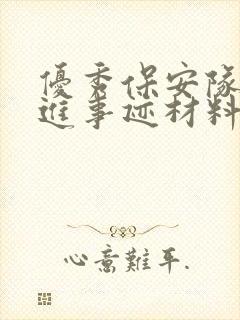 優秀保安隊
進事迹材料
心意難平.